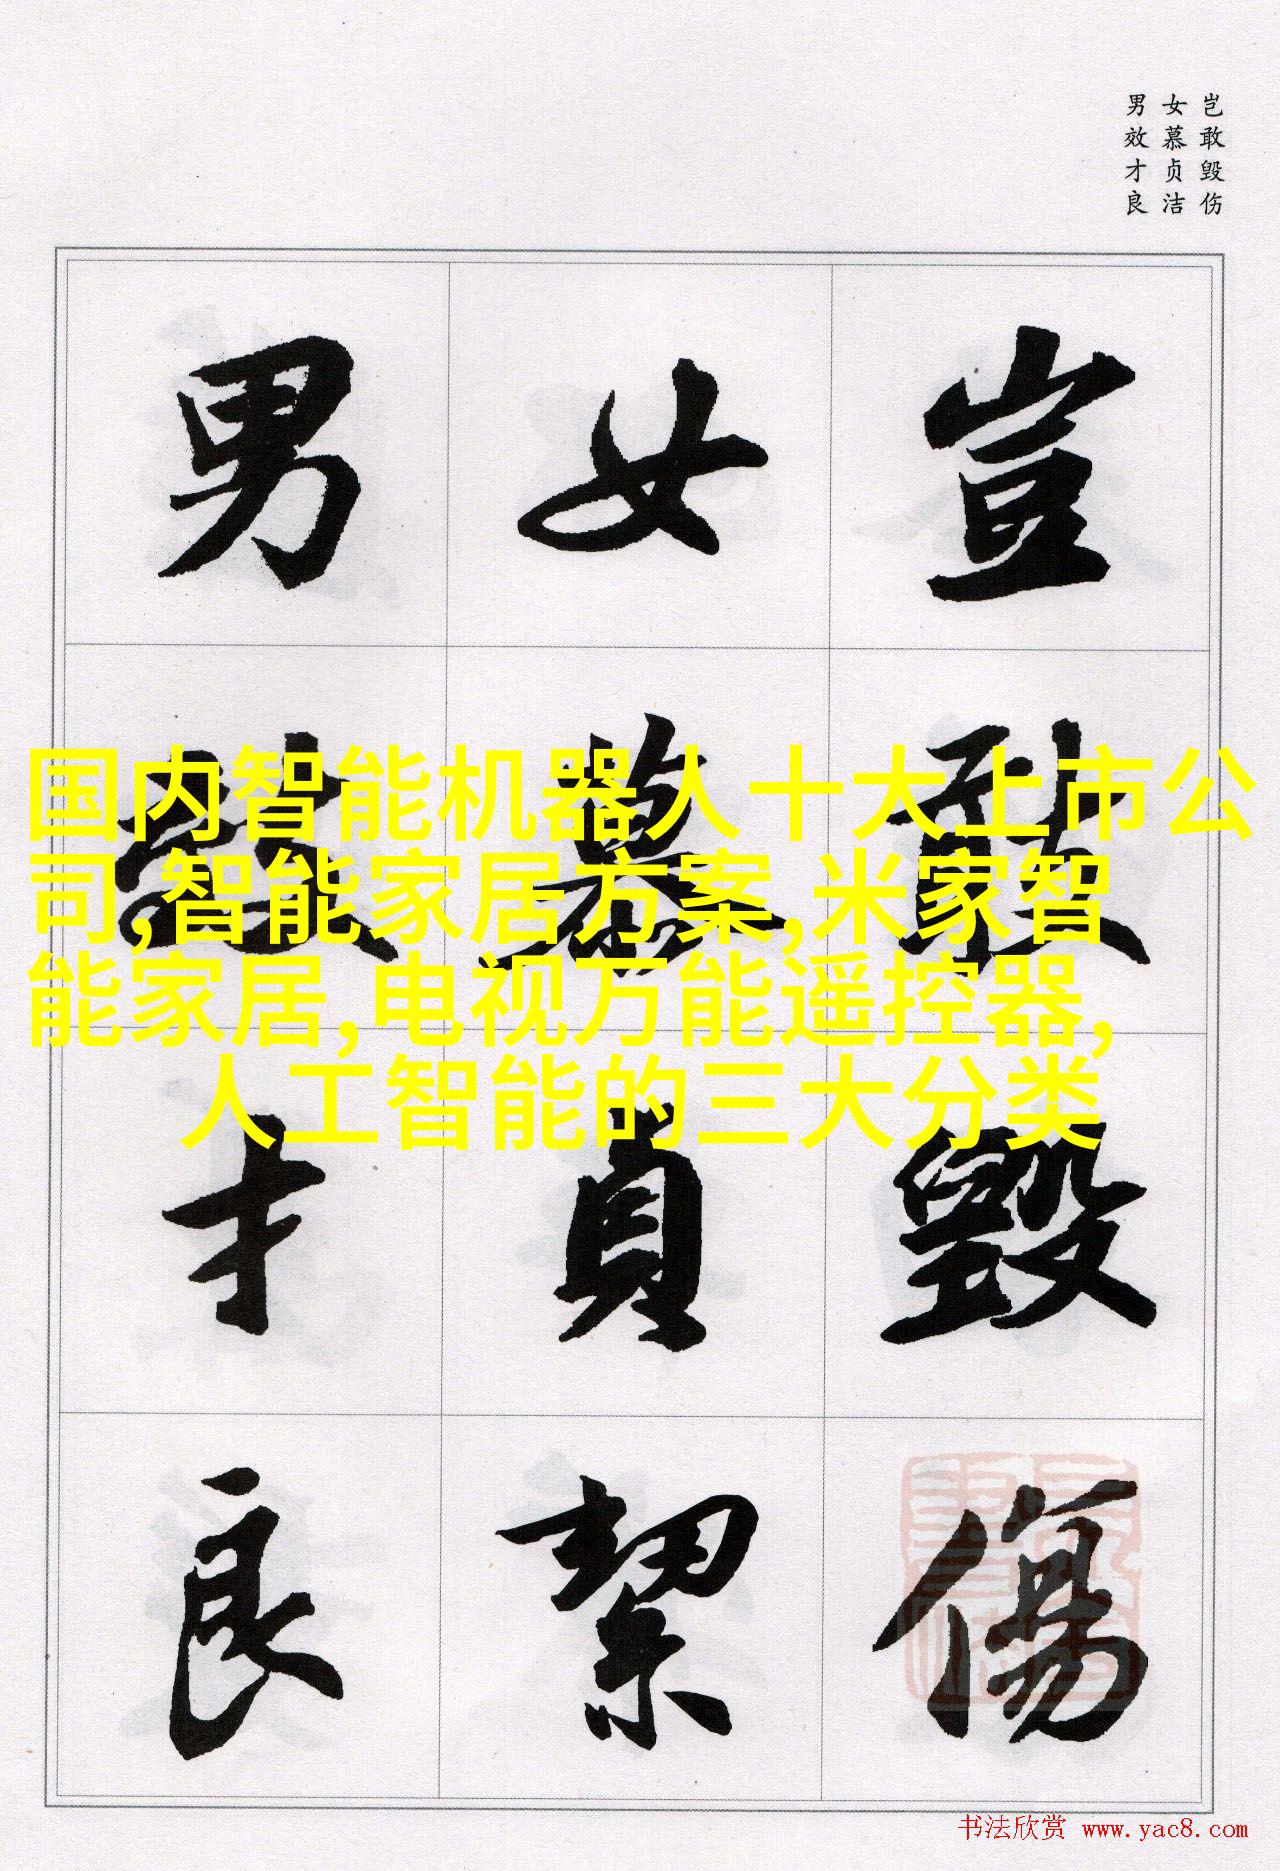 岂敢毁伤
女慕贞洁
男效才良
豈敢毀傷
女慕貞絜
男效才良
国内智能机器人十大上市公
司,智能家居方案,米家智
能家居,电视万能遥控器,
人工智能的三大分类
书法欣赏 www.yac8.com